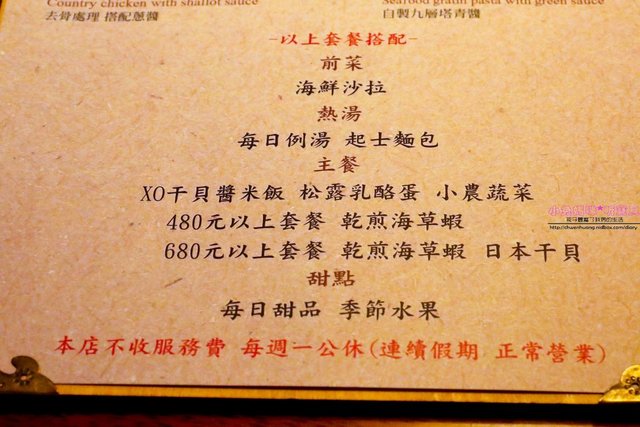 Country chicken with shallot sauce
去骨處理 搭配蔥醬
Seafood gratin pasta with green sauce
自製九層塔青醬
-以上套餐搭配-
前菜
海鮮沙拉
熱湯
每日例湯 起士麵包
主餐
XO干貝醬米飯 松露乳酪蛋 小農蔬菜
480元以上套餐 乾煎海草蝦
680元以上套餐 乾煎海草蝦 日本干貝
甜點
每日甜品 季節水果
本店不收服務費 每週一公休(連續假期 正常營業)
http://chuenhuang.nidbox.com/diary